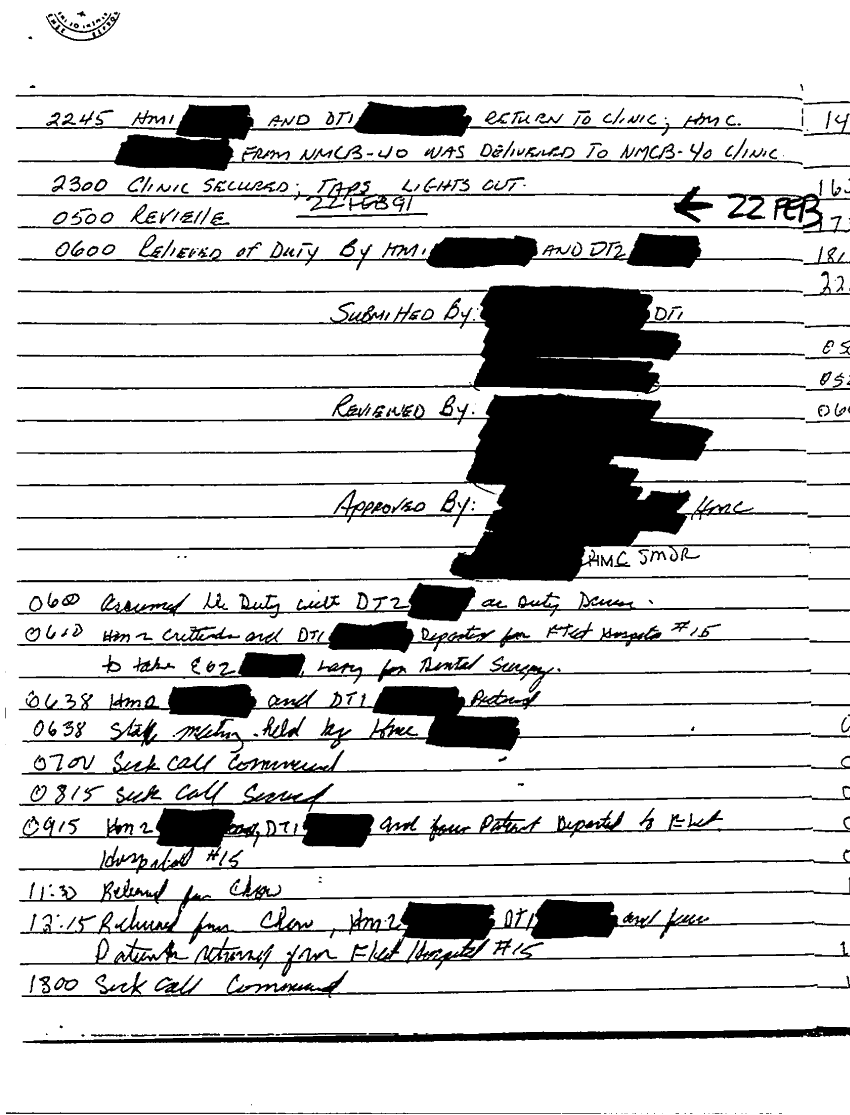 2245 HM1 AND DT1 RETURN TO CLINIC; HMC
FROM NMCB-40 WAS DELIVERED TO NMCB-40 CLINIC
2300 CLINIC SECURED; TAPS LIGHTS OUT.
22 FEB 91
0500 REVIELLE ← 22 FEB
0600 RELIEVED OF DUTY BY HM1 AND DT2
SUBMITTED BY: DT1
REVIEWED BY:
APPROVED BY: HMC
HMC SMDR
0600 Assumed the Duty with DT2 as Duty
0610 HM2 and DT1 Departed for Fleet Hospital #15
to take EO2 , for Dental Surgery.
0638 HM2 and DT1 Returned
0638 Staff meeting held by HMC
0700 Sick Call Commenced
0815 Sick Call Secured
0915 HM2 and, DT1 and four Patient Departed to Fleet
Hospital #15
11:30 Released for Chow
12:15 Returned from Chow, HM2 DT1 and four
Patients returned from Fleet Hospital #15
1300 Sick Call Commenced
14
163
173
181
22
05
052
060